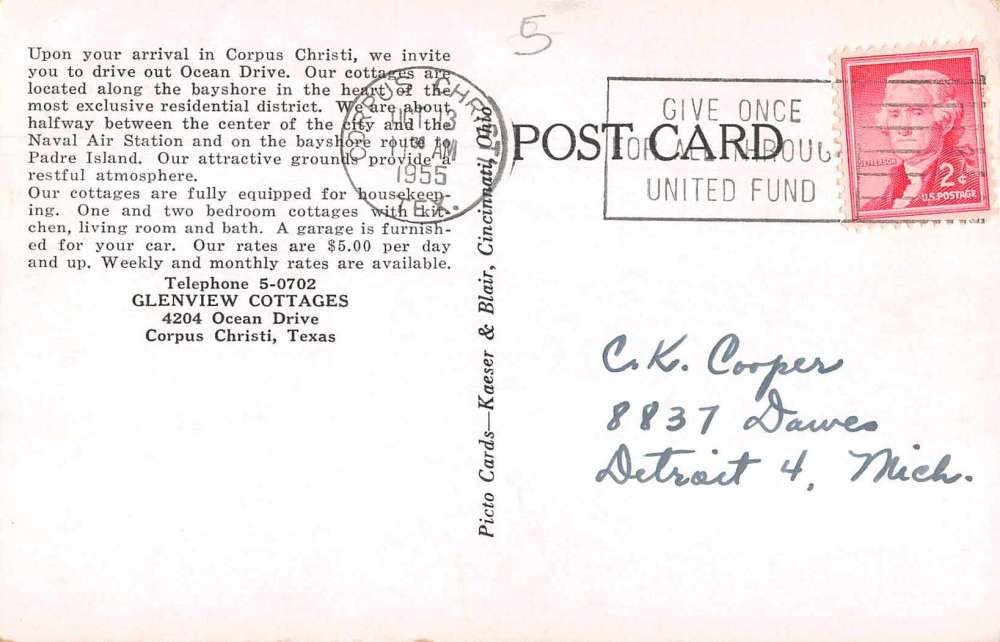 5
Upon your arrival in Corpus Christi, we invite
you to drive out Ocean Drive. Our cottages are
located along the bayshore in the heart of the
most exclusive residential district. We are about
halfway between the center of the city and the
Naval Air Station and on the bayshore route to
Padre Island. Our attractive grounds provide a
restful atmosphere.
Our cottages are fully equipped for housekeep-
ing. One and two bedroom cottages with kit-
chen, living room and bath. A garage is furnish-
ed for your car. Our rates are $5.00 per day
and up. Weekly and monthly rates are available.
Telephone 5-0702
GLENVIEW COTTAGES
4204 Ocean Drive
Corpus Christi, Texas
CORPUS CHRISTI
OCT 13
AM
1955
TEX.
Picto Cards—Kaeser & Blair, Cincinnati, Ohio
POST CARD
GIVE ONCE
FOR ALL THROUGH
UNITED FUND
JEFFERSON
2¢
U.S. POSTAGE
C.K. Cooper
8837 Dawes
Detroit 4, Mich.